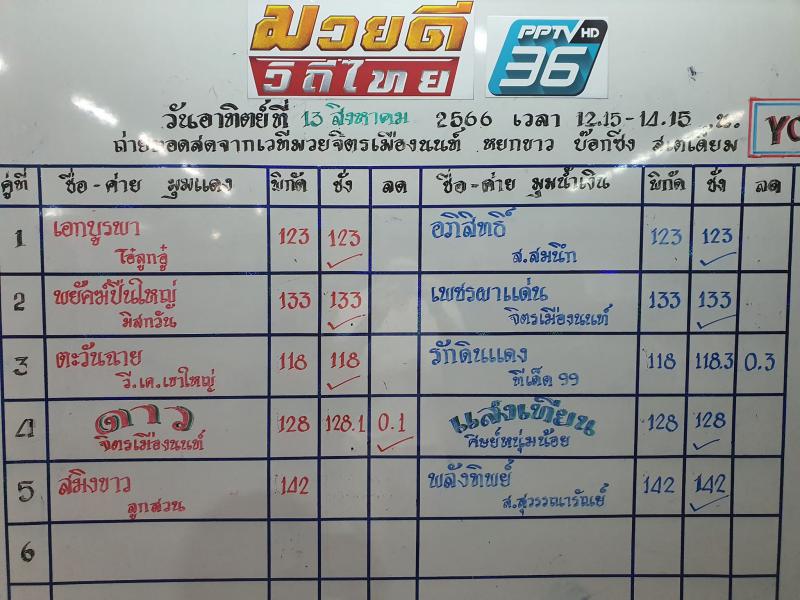 มวยดี
วิถีไทย
PPTV HD
36
วันอาทิตย์ที่ 13 สิงหาคม 2566 เวลา 12.15-14.15 น.
ถ่ายทอดสดจากเวทีมวยจิตรเมืองนนท์ หยกขาว บ๊อกซิ่ง สเตเดี้ยม
คู่ที่ ชื่อ-ค่าย มุมแดง พิกัด ชั่ง ลด ชื่อ-ค่าย มุมน้ำเงิน พิกัด ชั่ง ลด
1 เอกบูรพา 123 123 อภิสิทธิ์ 123 123
โอ๋ลูกอู๋ ส.สมนึก
2 พยัคฆ์ปืนใหญ่ 133 133 เพชรผาแด่น 133 133
มิสกวัน จิตรเมืองนนท์
3 ตะวันฉาย 118 118 รักดินแดง 118 118.3 0.3
วี.เค.เขาใหญ่ ทีเด็ด 99
4 ดาว 128 128.1 0.1 แสงเทียน 128 128
จิตรเมืองนนท์ ศิษย์หนุ่มน้อย
5 สมิงขาว 142 พลังทิพย์ 142 142
ลูกสวน ส.สุวรรณารัณย์
6